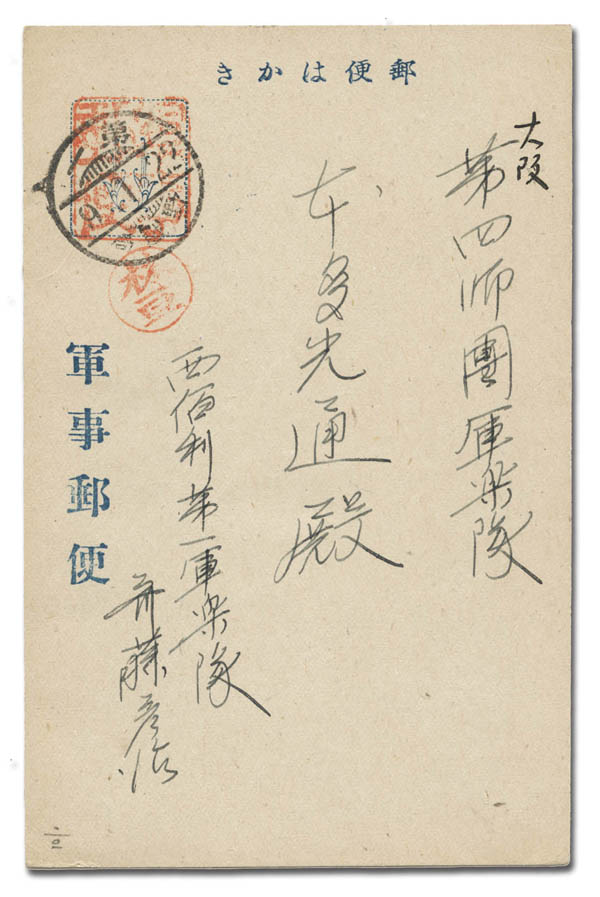 郵便はかき
大阪
第四師團軍楽隊
本多光通殿
西伯利第一軍楽隊
斉藤彦治
軍事郵便
第二
9.1.23